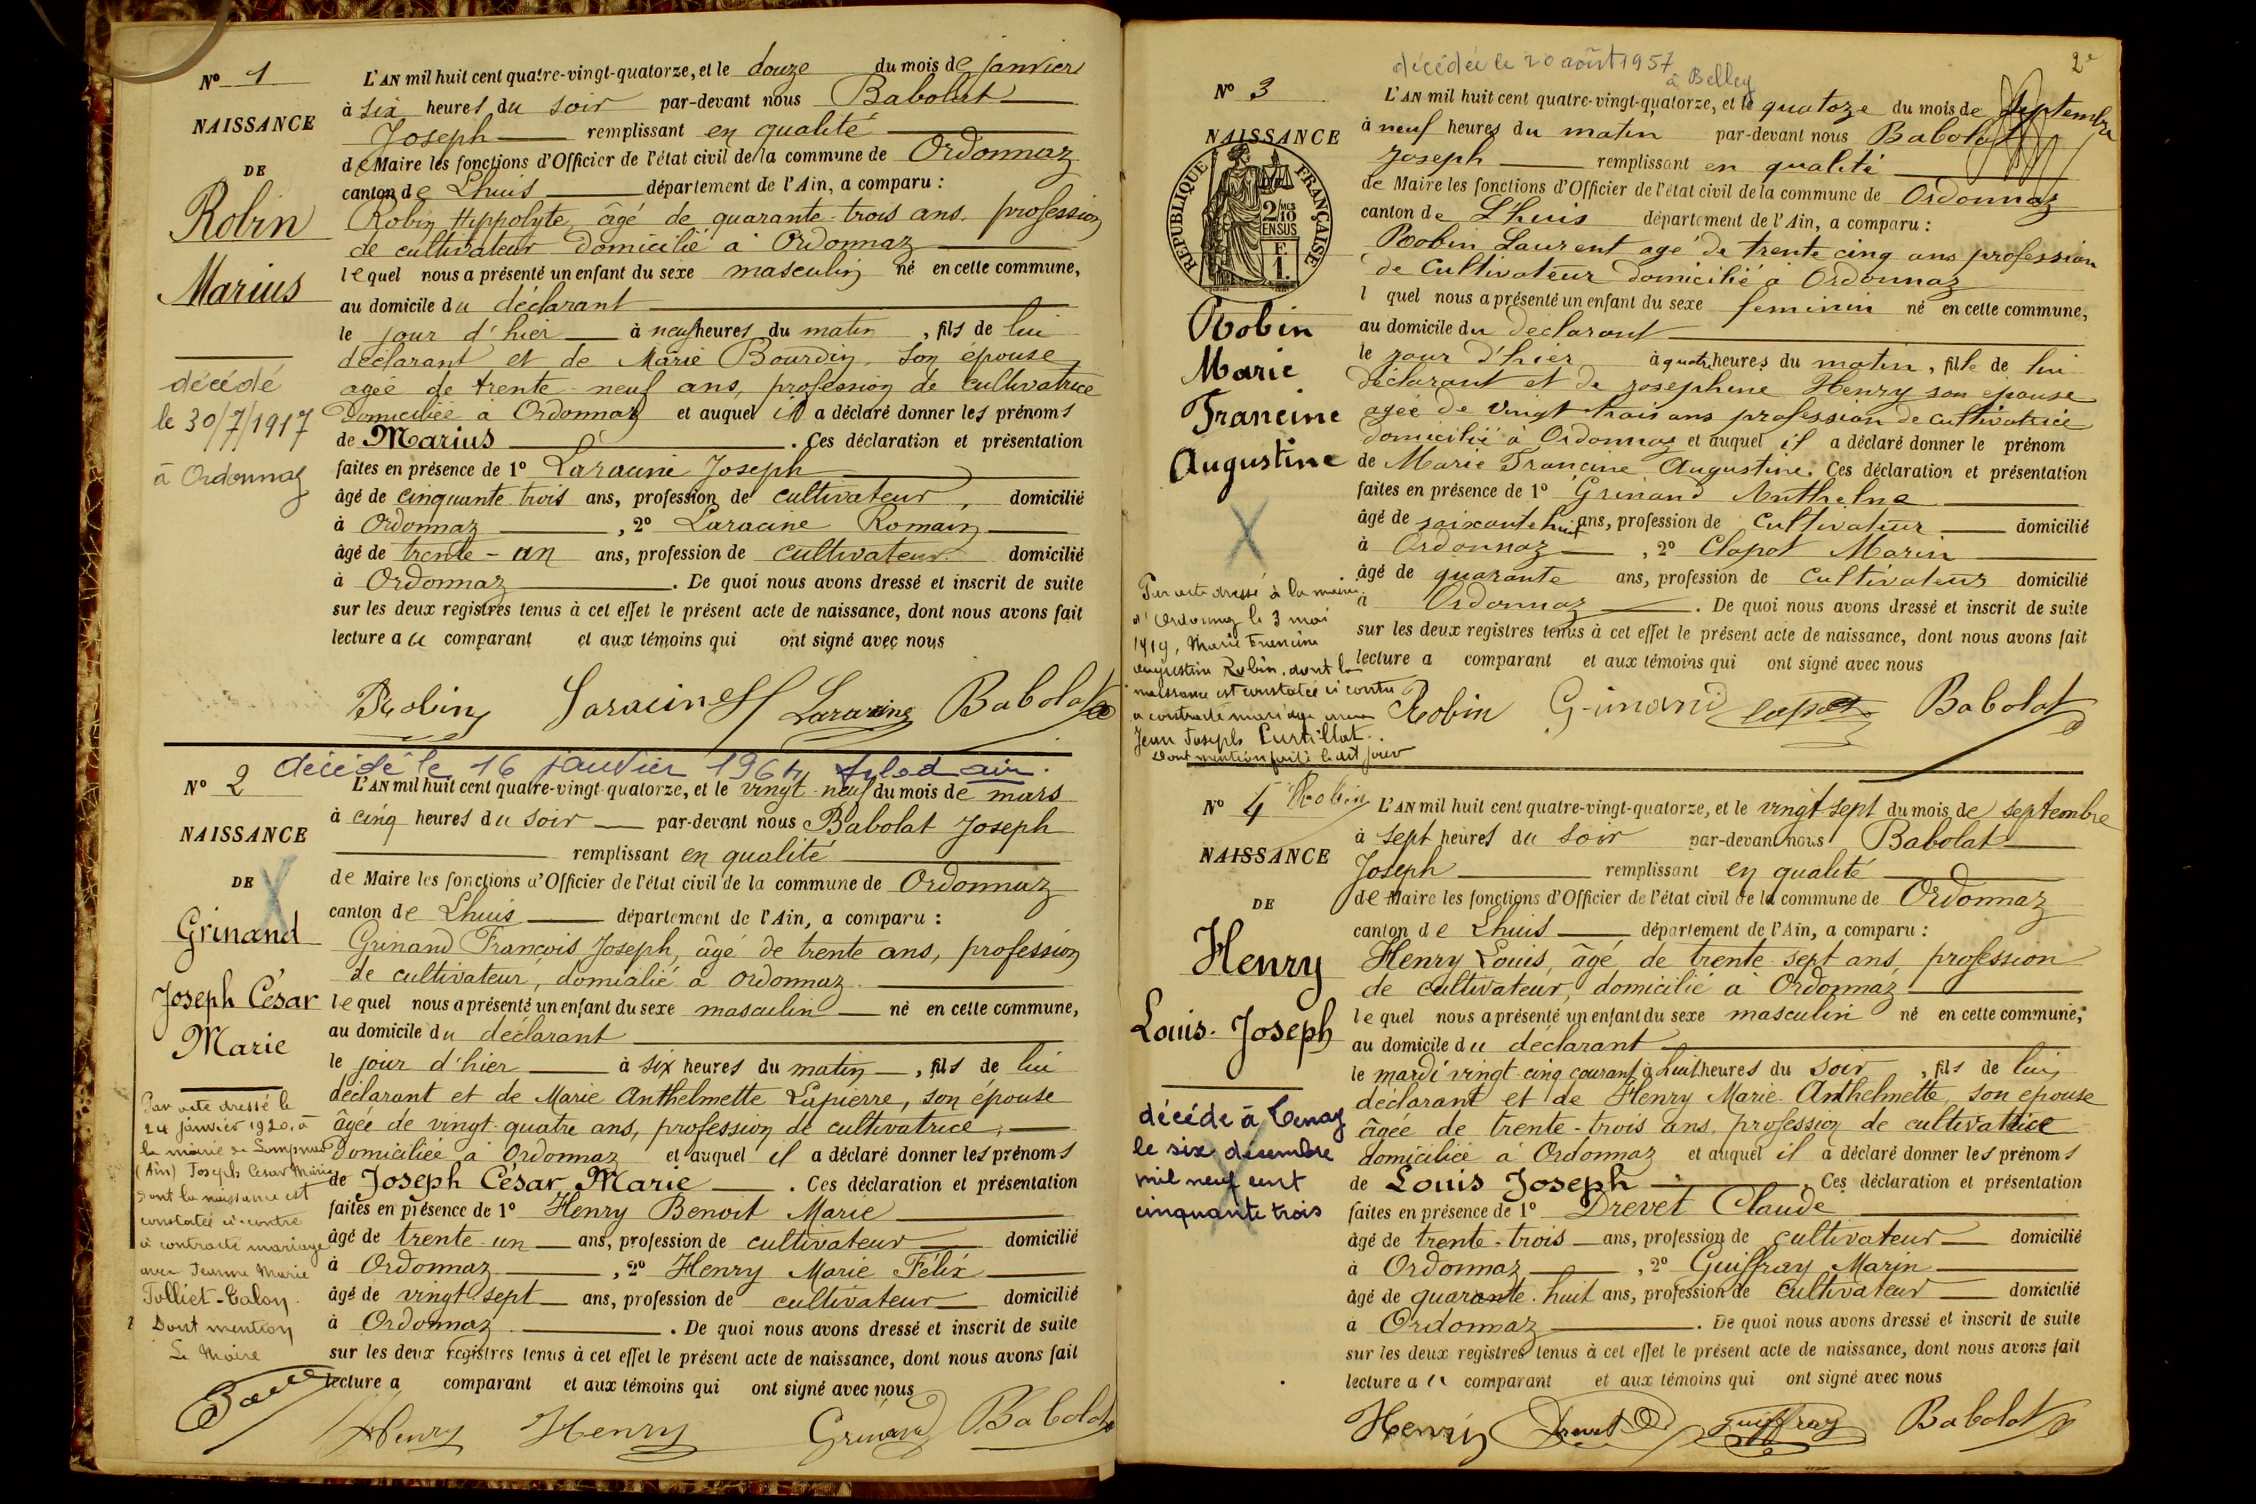 Nº 1
L'AN mil huit cent quatre-vingt-quatorze, et le douze du mois de janvier
à six heures du soir par-devant nous Babolat
Joseph remplissant en qualité
NAISSANCE
de Maire les fonctions d'Officier de l'état civil de la commune de Ordonnaz
DE
canton de Lhuis département de l'Ain, a comparu :
Robin
Marius
Robin Hippolyte, âgé de quarante-trois ans, profession
de cultivateur domicilié à Ordonnaz
lequel nous a présenté un enfant du sexe masculin né en cette commune,
au domicile du déclarant
le jour d'hier à neuf heures du matin, fils de lui
déclarant et de Marie Bourdin, son épouse
agée de trente-neuf ans, profession de cultivatrice
domiciliée à Ordonnaz et auquel il a déclaré donner les prénoms
de Marius. Ces déclaration et présentation
faites en présence de 1º Laracine Joseph
âgé de cinquante trois ans, profession de cultivateur, domicilié
à Ordonnaz, 2º Laracine Romain
âgé de trente-un ans, profession de cultivateur domicilié
à Ordonnaz. De quoi nous avons dressé et inscrit de suite
sur les deux registres tenus à cet effet le présent acte de naissance, dont nous avons fait
lecture au comparant et aux témoins qui ont signé avec nous
décédé
le 30/7/1917
à Ordonnaz
Robin Laracine Laracine Babolat
décédé le 16 janvier 1964
Nº 2
L'AN mil huit cent quatre-vingt-quatorze, et le vingt-neuf du mois de mars
à cinq heures du soir par-devant nous Babolat Joseph
remplissant en qualité
NAISSANCE
de Maire les fonctions d'Officier de l'état civil de la commune de Ordonnaz
DE
canton de Lhuis département de l'Ain, a comparu :
Grinand
Joseph César
Marie
Grinand François Joseph, âgé de trente ans, profession
de cultivateur, domicilié à Ordonnaz
lequel nous a présenté un enfant du sexe masculin né en cette commune,
au domicile du déclarant
le jour d'hier à six heures du matin, fils de lui
déclarant et de Marie Anthelmette Lapierre, son épouse
âgée de vingt-quatre ans, profession de cultivatrice,
domiciliée à Ordonnaz et auquel il a déclaré donner les prénoms
de Joseph César Marie. Ces déclaration et présentation
faites en présence de 1º Henry Benoit Marie
âgé de trente-un ans, profession de cultivateur domicilié
à Ordonnaz, 2º Henry Marie Félix
âgé de vingt sept ans, profession de cultivateur domicilié
à Ordonnaz. De quoi nous avons dressé et inscrit de suite
sur les deux registres tenus à cet effet le présent acte de naissance, dont nous avons fait
lecture a comparant et aux témoins qui ont signé avec nous
Par acte dressé le
24 janvier 1920, à
la mairie de
(Ain) Joseph César Marie
dont la naissance est
constatée ci-contre
a contracté mariage
avec Jeanne Marie
Tolliet-Talon
Dont mention
Le Maire
Henry Henry Grinand Babolat
2e
décédée le 20 août 1957
à Belley
Nº 3
L'AN mil huit cent quatre-vingt-quatorze, et le quatoze du mois de septembre
à neuf heures du matin par-devant nous Babolat
NAISSANCE
Joseph remplissant en qualité
de Maire les fonctions d'Officier de l'état civil de la commune de Ordonnaz
canton de L'huis département de l'Ain, a comparu :
RÉPUBLIQUE FRANÇAISE
2/10 MES
EN SUS
F.
1.
Robin
Marie
Francine
Augustine
Robin Laurent agé de trente cinq ans profession
de Cultivateur domicilié à Ordonnaz
l quel nous a présenté un enfant du sexe feminin né en cette commune,
au domicile du declarant
le jour d'hier à quatre heures du matin, fille de lui
déclarant et de josephine Henry son epouse
agée de vingt trois ans profession de cultivatrice
domicilié à Ordonnaz et auquel il a déclaré donner le prénom
de Marie Francine Augustine. Ces déclaration et présentation
faites en présence de 1º Grinand Anthelme
âgé de soixante huit ans, profession de Cultivateur domicilié
à Ordonnaz, 2º Clapot Marin
âgé de quarante ans, profession de Cultivateur domicilié
à Ordonnaz. De quoi nous avons dressé et inscrit de suite
sur les deux registres tenus à cet effet le présent acte de naissance, dont nous avons fait
lecture a comparant et aux témoins qui ont signé avec nous
Par acte dressé à la mairie
d'Ordonnaz le 3 mai
1919, Marie Francine
Augustine Robin, dont la
naissance est constatée ci contre
a contracté mariage avec
Jean Joseph
Dont mention faite le dit jour
Robin Grinand Clapot Babolat
Nº 4 Robin
L'AN mil huit cent quatre-vingt-quatorze, et le vingt-sept du mois de septembre
à sept heures du soir par-devant nous Babolat
NAISSANCE
Joseph remplissant en qualité
DE
de Maire les fonctions d'Officier de l'état civil de la commune de Ordonnaz
canton de Lhuis département de l'Ain, a comparu :
Henry
Louis-Joseph
Henry Louis, âgé de trente-sept ans, profession
de cultivateur, domicilié à Ordonnaz
lequel nous a présenté un enfant du sexe masculin né en cette commune,
au domicile du déclarant
le mardi vingt-cinq courant à huit heures du soir, fils de lui
déclarant et de Henry Marie Anthelmette, son épouse
âgée de trente-trois ans, profession de cultivatrice
domiciliée à Ordonnaz et auquel il a déclaré donner les prénoms
de Louis Joseph. Ces déclaration et présentation
faites en présence de 1º Drevet Claude
âgé de trente-trois ans, profession de cultivateur domicilié
à Ordonnaz, 2º Guiffray Marin
âgé de quarante-huit ans, profession de cultivateur domicilié
à Ordonnaz. De quoi nous avons dressé et inscrit de suite
sur les deux registres tenus à cet effet le présent acte de naissance, dont nous avons fait
lecture au comparant et aux témoins qui ont signé avec nous
décédé à Tenay
le six décembre
mil neuf cent
cinquante trois
Henry Drevet Guiffray Babolat